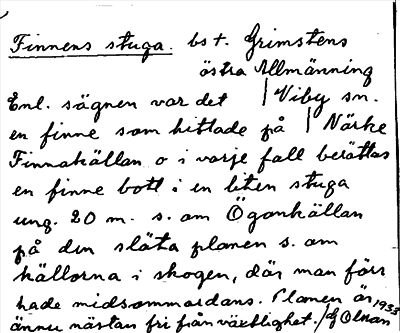 Finnens stuga. bst. Grimstens
östra Allmänning
Enl. sägnen var det | Viby sn.
en finne som hittade på | Närke
Finnakällan o i varje fall berättas
en finne bott i en liten stuga
ung. 20 m. s. om Ögonkällan
på den släta planen s. om
källorna i skogen, där man förr
hade midsommardans. Planen är
ännu nästan fri från växtlighet. / G Olman 1933